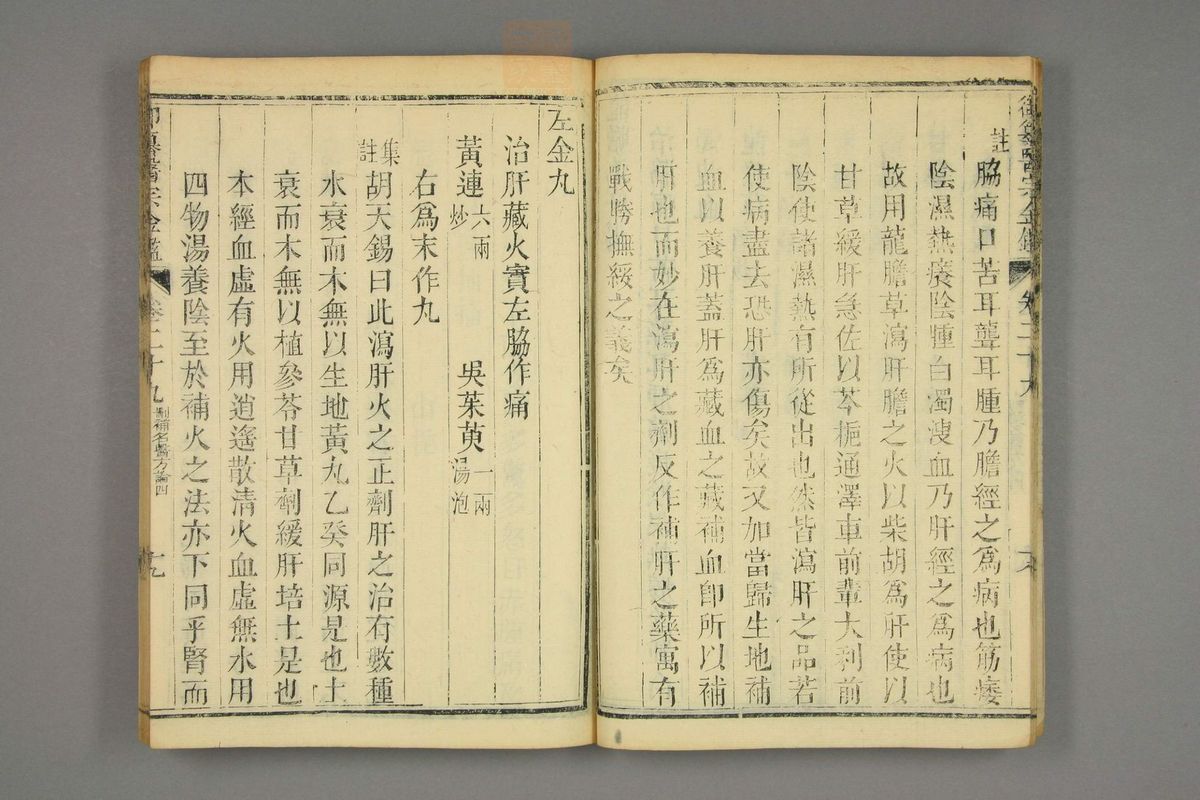 註
脇痛口苦耳聾耳腫乃膽經之爲病也筋痿
陰濕熱癢陰腫白濁溲血乃肝經之爲病也
故用龍膽草瀉肝膽之火以柴胡爲肝使以
甘草緩肝急佐以芩梔通澤車前輩大利前
陰使諸濕熱有所從出也然皆瀉肝之品若
使病盡去恐肝亦傷矣故又加當歸生地補
血以養肝蓋肝爲藏血之藏補血卽所以補
肝也而妙在瀉肝之劑反作補肝之藥寓有
戰勝撫綏之義矣
左金丸
治肝藏火實左脇作痛
黃連六兩炒 吳茱萸一兩湯泡
右爲末作丸
集註
胡天錫曰此瀉肝火之正劑肝之治有數種
水衰而木無以生地黃丸乙癸同源是也土
衰而木無以植參苓甘草劑緩肝培土是也
本經血虛有火用逍遙散清火血虛無水用
四物湯養陰至於補火之法亦下同乎腎而
御纂醫宗金鑑 卷二十九 刪補名醫方論四